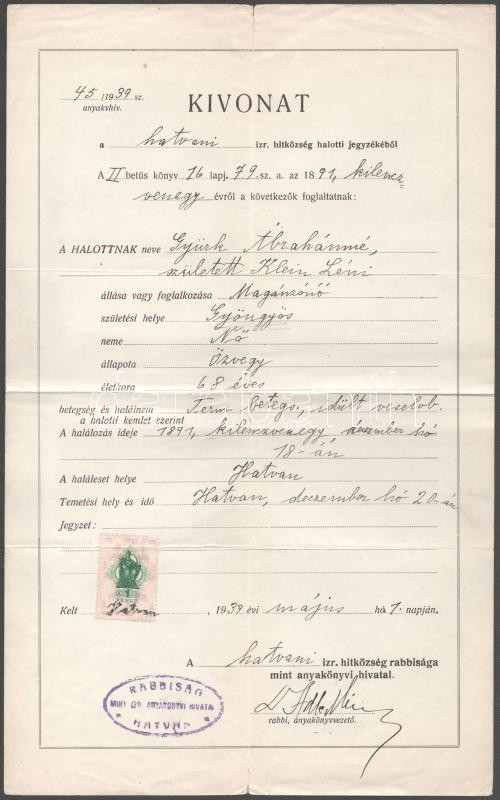 45 /1939 sz.
anyakvhiv.
KIVONAT
a hatvani izr. hitközség halotti jegyzékéből
A II betüs könyv 16 lapj. 79. sz. a. az 1891, kilencz„
venegy évről a következők foglaltatnak:
A HALOTTNAK neve Gyürk Ábrahánmé,
született Klein Léni
állása vagy foglalkozása Magánzónő
születési helye Gyöngyös
neme Nő
állapota Özvegy
életkora 68 éves
betegség és halálnem Term. betegs., idült veselob.
a halotti kémlet szerint
A halálozás ideje 1891, kilenczvenegy deczember hó
18-án
A haláleset helye Hatvan
Temetési hely és idő Hatvan, deczember hó 20-án
Jegyzet:
1
Kelt Hatvan, 1939 évi május hó 1. napján.
A hatvani izr. hitközség rabbisága
mint anyakönyvi hivatal.
RABBISÁG
MINT IZR. ANYAKÖNYVI HIVATAL
HATVAN
Dr
rabbi, anyakönyvvezető.